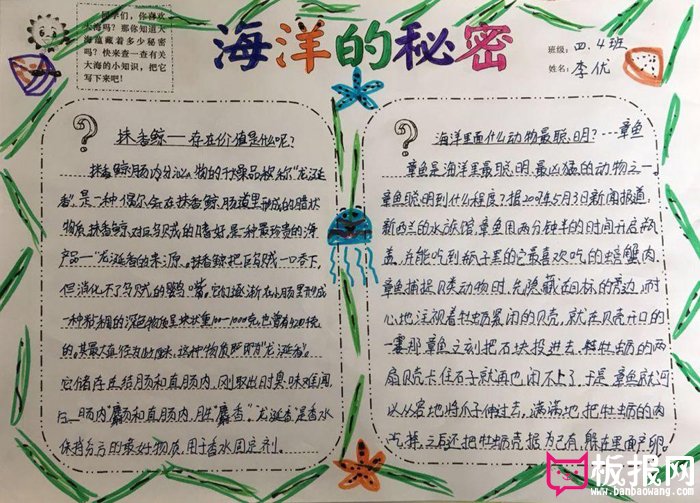 同学们，你喜欢
大海吗？那你知道大
海蕴藏着多少秘密
吗？快来查一查有关
大海的小知识，把它
写下来吧！
海洋的秘密
班级：四.4班
姓名：李优
抹香鲸——存在价值是什么呢？
抹香鲸肠内分泌物的干燥品被称“龙涎
香”，是一种偶尔会在抹香鲸肠道里形成的腊状
物质，抹香鲸对乌贼的嗜好，是一种最珍贵的海
产品——“龙涎香的来源。抹香鲸把乌贼一口吞下，
但消化不了乌贼的鹦嘴。它们逐渐在小肠里形成
一种粘稠的深色物质呈块状重100-1000克，也曾有420千克
的。其最大直径为165cm，这种物质即为“龙涎香”。
它储存在结肠和直肠内，刚取出时臭味难闻
存在结肠和直肠内，
龙涎香是香水
保持芬芳的最好物质，用于香水固定剂。
海洋里面什么动物最聪明？……章鱼
章鱼是海洋里最聪明、最凶猛的动物之一。
章鱼聪明到什么程度？据
5月3日新闻报道，
新西兰的水族馆，章鱼用两分钟半的时间开启瓶
盖，并能吃到瓶子里的它最喜欢吃的螃蟹肉。
章鱼捕捉贝类动物时，先隐藏在目标的旁边，耐
心地注视着牡蛎紧闭的贝壳，就在贝壳开口的
一霎那章鱼立刻把石块投进去，牡蛎的两
扇贝壳卡住石子就再也闭不上了，于是章鱼就可
以从容地将爪子伸过去，满满地把牡蛎的肉
吃掉，之后还把牡蛎壳据为己有，躲在里面产卵。
板报网
www.banbaowang.com